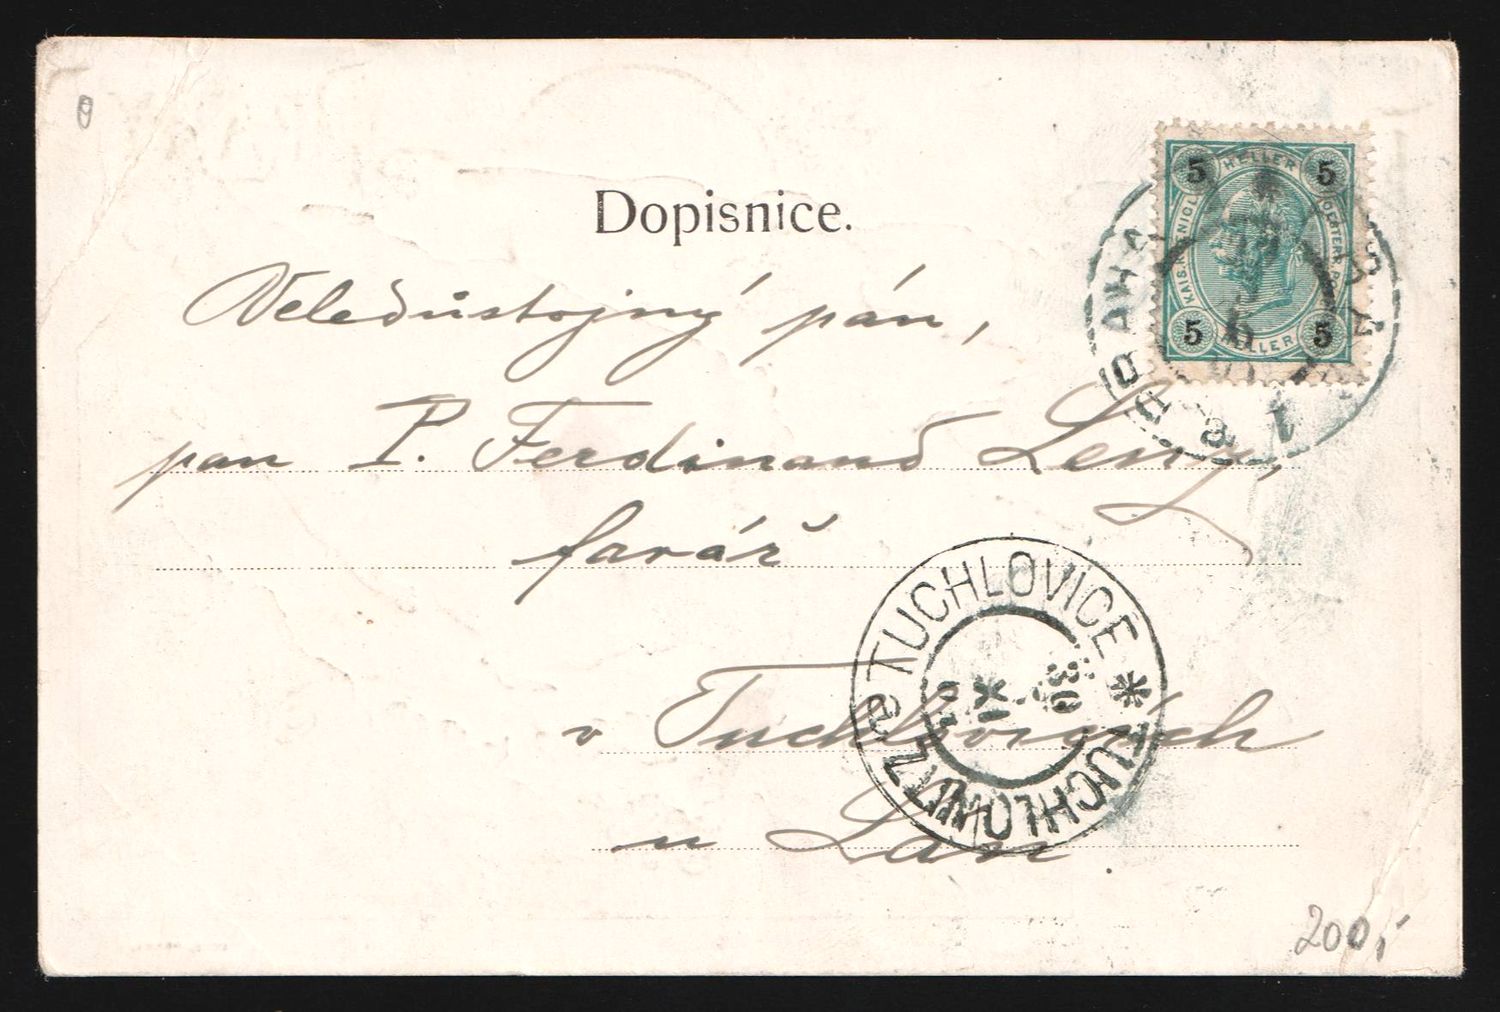 Dopisnice.
5 HELLER 5
KAIS. KOENIGL. OESTERR. POST
5 HELLER 5
PRAHA 1 PRAGA
Veledůstojný pán,
pan P. Ferdinand Lenz,
farář
TUCHLOVICE * TUCHLOWITZ
30
XI
v Tuchlovicích
u Lán
200,-